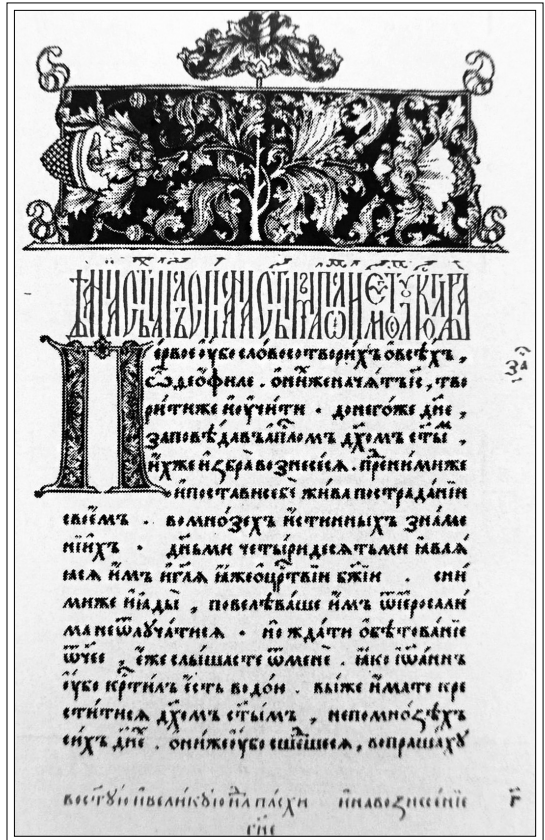 Первоеᲂу҆бословосотвори́хъѡ҆всѣ́хъ,
ѽдео́филе . ѡ҆ни́хженача́тъі҃с, тво
ри́тижеиᲂу҆чи́ти . донего́жедн҃е ,
заповѣ́давъа҆пⷭ҇ломъдх҃омъст҃ыⷨ ,
и҆́хжеи҆збра̀вознесе́сѧ . преⷣни́миже
и҆поста́висебѐжи́вапострада́нїи
свое́мъ . вомно́зехъ и҆́стинныхъ зна́ме
нїихъ . дн҃ьми четы́ридесѧтьми ꙗ҆влѧ́
ꙗсѧ и҆̀мъ и҆гл҃ѧ ꙗ҆́жеоцрⷭ҇твїи бж҃їи . сни́
миже и҆ꙗ҆ды̀ , повелѣва́ше и҆̀мъ ѿі҆еросали́
ма неѿлуча́тисѧ . но жда́ти ѡ҆бѣтова́нїе
ѿчее , е҆́же слы́шасте ѿменѐ . ꙗ҆́ко і҆ѡа́ннъ
ᲂу҆́бо крⷭ҇ти́лъ е҆́сть водо́ю . вы́же и҆́мате кре
сти́тисѧ дх҃омъ ст҃ымъ , непомно́ѕѣхъ
си́хъ дн҃е . ѻ҆ни́жеᲂу҆́бо сше́дшесѧ, вопраша́хꙋ
за҃
вост҃ꙋю и҆вели́кꙋю нⷣлю па́схи и҆навознесе́нїе г҃
гн҃е